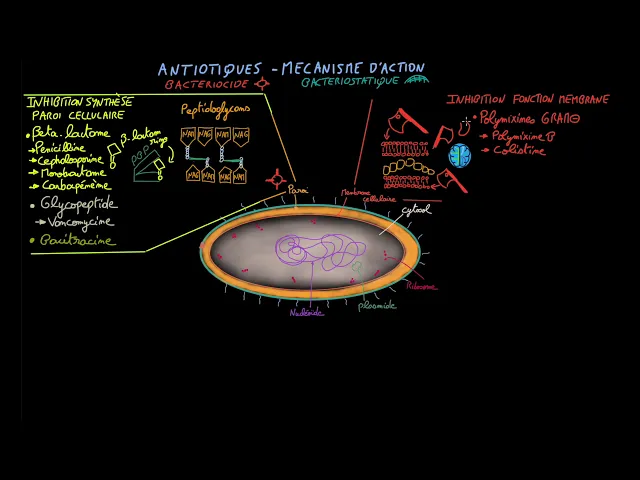 ANTIOTIQUES - MECANISME D'ACTION
BACTERIOCIDE
BACTERIOSTATIQUE
INHIBITION SYNTHÈSE
PAROI CELLULAIRE
Beta-lactame
Penicilline
Cephalosporine
Monobactame
Carbapénème
Glycopeptide
Vancomycine
Bacitracine
β-lactam
ring
PBP
Peptidoglycans
NAM NAG NAM NAG
NAG NAM NAG NAM
INHIBITION FONCTION MEMBRANE
Polymixines GRAM⊖
Polymixine B
Colistine
Paroi
Membrane
cellulaire
cytosol
Ribosome
plasmide
Nucléoide